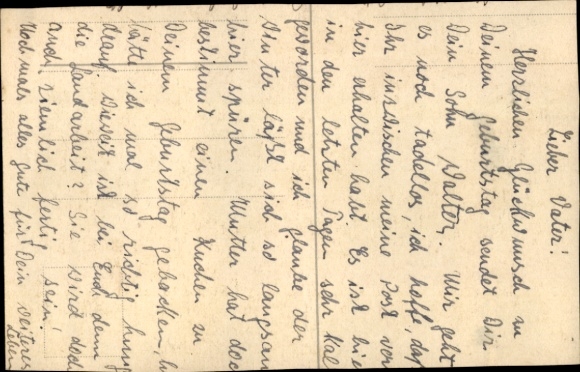 Lieber Vater!
Herzlichen Glückwunsch zu
Deinem Geburtstag sendet Dir
Dein Sohn Walter. Mir geht
es noch tadellos, ich hoffe, daß
Ihr inzwischen meine Post von
hier erhalten habt. Es ist hier
in den letzten Tagen sehr kal
geworden und ich glaube der
Winter läßt sich so langsam
hier spüren. Mutter hat doch
bestimmt einen Kuchen zu
Deinem Geburtstag gebacken, h
hätte ich mal so richtig hung
drauf. Wieweit ist bei Euch denn
die Landarbeit? Sie wird doch
auch ziemlich fertig sein!
Nochmals alles gute für Dein weiteres
Leben